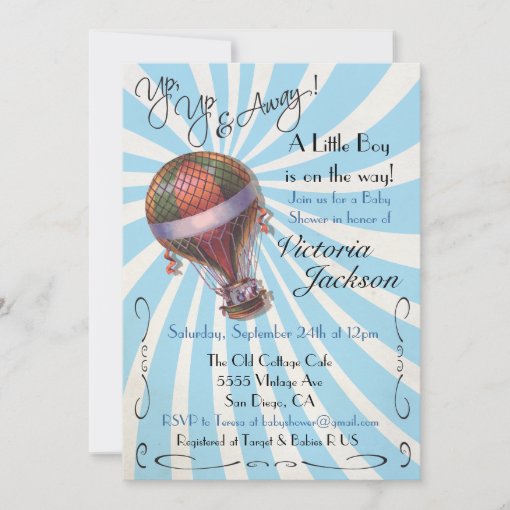 Up, Up
& Away!
A Little Boy
is on the way!
Join us for a Baby
Shower in honor of
Victoria
Jackson
Saturday, September 24th at 12pm
The Old Cottage Cafe
5555 VIntage Ave
San Diego, CA
RSVP to Teresa at babyshower@gmail.com
Registered at Target & Babies R US